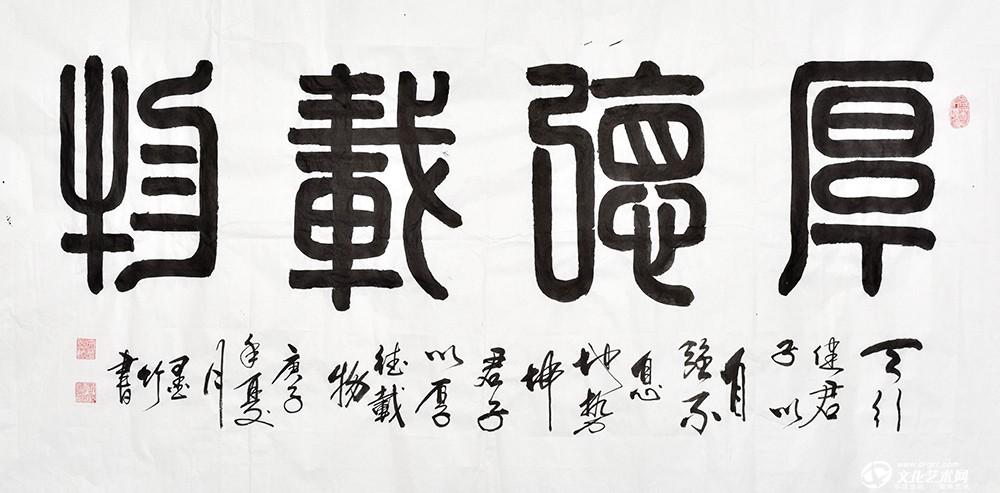 厚德載物
天行
健君
子以
自
強不
息
地勢
坤
君子
以厚
德載
物
庚子
年夏
月
墨竹
書
www.orgcc.com
文化艺术网